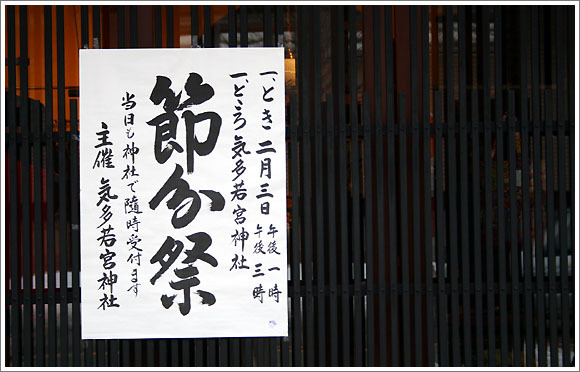 一、とき 二月三日 午後一時
午後三時
一、ところ 気多若宮神社
節分祭
当日も神社で随時受付ます
主催 気多若宮神社